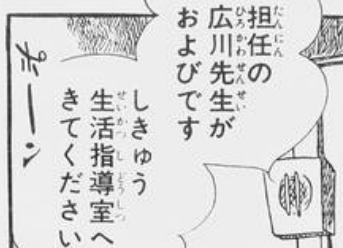 担任の
広川先生が
およびです
しきゅう
生活指導室へ
きてください
だーーん